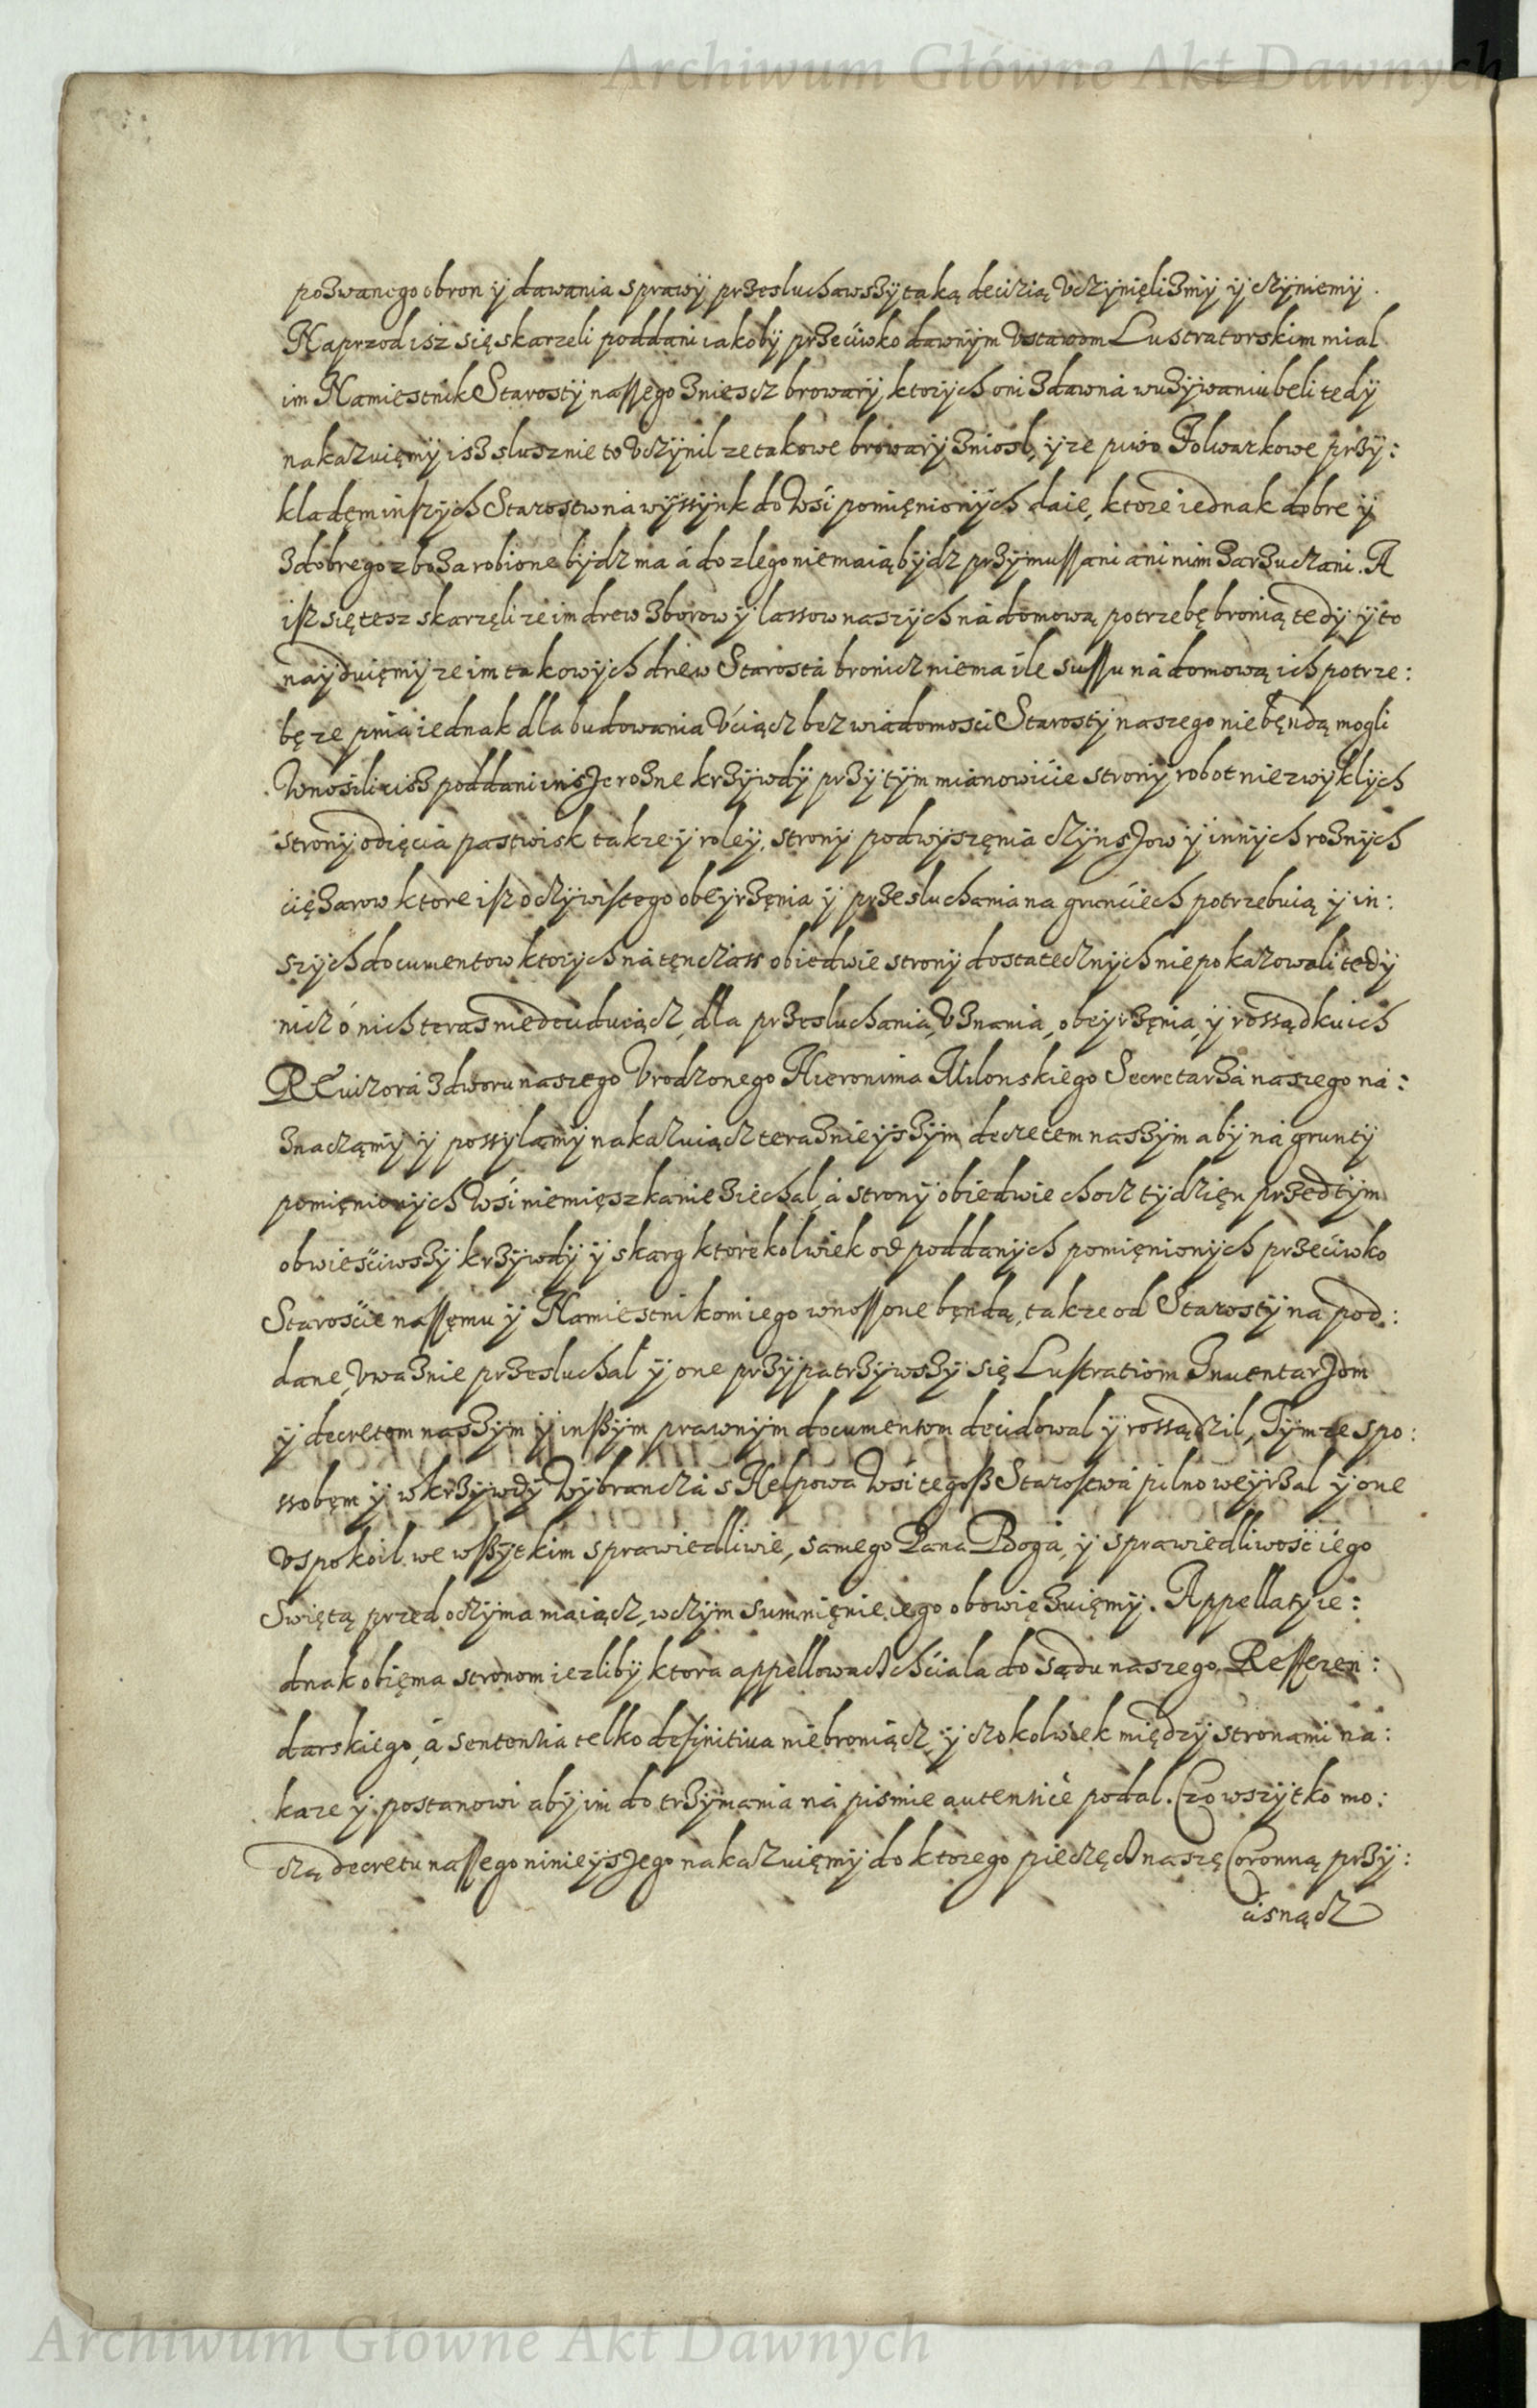 Archiwum Główne Akt Dawnych
pozwanego obron ÿ dawania sprawÿ przesłuchawszÿ taką decizią Vczÿnięlizmÿ ÿ czÿniemÿ.
Naprzod isz się skarzeli poddani iakobÿ przeciwko dawnÿm Vstawom Lustratorskim mial
im Namiestnik Starostÿ nassego zniescz browarÿ, ktorÿch oni zdawná w uzÿwaniu beli tedÿ
nakazuięmÿ isz slusznie to Vczÿnil ze takowe browarÿ zniosl, ÿ ze piwo Folwarkowe przÿ:
kladęm inszÿch Starostw ná wÿssÿnk do Wśi pomięnionÿch daie, ktore iednak dobre ÿ
z dobrego zboza robione bÿdz ma á do zlego nie maią bÿdz przÿmussani ani nim zarzuczani. A
isz się tesz skarzęli ze im drew z borow ÿ lassow naszÿch ná domową potrzebę bronią tedÿ ÿ to
naÿduięmÿ ze im takowÿch drew Starostá bronicz niema ile sussu ná domową ich potrze:
bę ze pniá iednak dla budowania Vciącz bez wiadomosci Starostÿ naszego nie będą mogli
Wnosili cisz poddani insze rozne krzÿwdÿ przÿ tÿm mianowicie stronÿ robot niezwÿklÿch
stronÿ odięcia pastwisk takze ÿ roleÿ, stronÿ podwÿszęnia czÿnszow ÿ innÿch roznÿch
cięzarow ktore isz oczÿwistego obeÿrzęnia ÿ przesluchania na grunciech potrzebuią ÿ in:
szÿch documentow ktorÿch ná tęn czass obiedwie stronÿ dostatecznÿch nie pokazowali tedÿ
nicz ó nich teras nie deciduiącz, dla przesluchania, Vznania, obeÿrzęnia, ÿ rossądku ich
REuizora z dworu naszego Vrodzonego Hieronima Milonskiego Secretarza naszego ná:
znaczamÿ ÿ possÿlamÿ nakazuiącz teraznieÿszÿm decretem naszÿm abÿ ná gruntÿ
pomięnionÿch Wśi niemięszkanie ziechal, á stronÿ obiedwie chocz tÿdzięn przed tÿm
obwieściwszÿ krzÿwdÿ ÿ skarg ktorekolwiek od poddanÿch pomięnionÿch przeciwko
Staroście nassęmu ÿ Namiestnikom iego wnossone będą, takze od Starostÿ na pod:
dane, Vwaznie przesluchal ÿ one przÿpatrzÿwszÿ się Lustratiom Inuentarzom
ÿ decretom naszÿm ÿ inszÿm prawnÿm documentom decidowal ÿ rossądzil, Tÿmze spo:
ssobęm ÿ w krzÿwdÿ Wÿbranczá s Kelpowa Wśi tegosz Starostwá pilno weÿrzal ÿ one
Vspokoil, we wszÿtkim sprawiedliwie, samego Pana Boga, ÿ sprawiedliwość iego
Swiętą przed oczÿma maiącz, w czÿm sumnięnie iego obowięzuięmÿ. Appellatÿ ie:
dnak obięma stronom iezlibÿ ktora appellowacz chciala do sądu naszego Refferen:
darskiego, á sententia telko definitiua nie broniącz, ÿ czokolwiek międzÿ stronami ná:
kaze ÿ postanowi abÿ im do trzÿmania ná pismie autentice podal. Czo wszÿtko mo:
czą decretu nassego ninieÿszego nakazuięmÿ do ktorego pieczęcz naszę Coronną przÿ:
cisnącz
Archiwum Główne Akt Dawnych